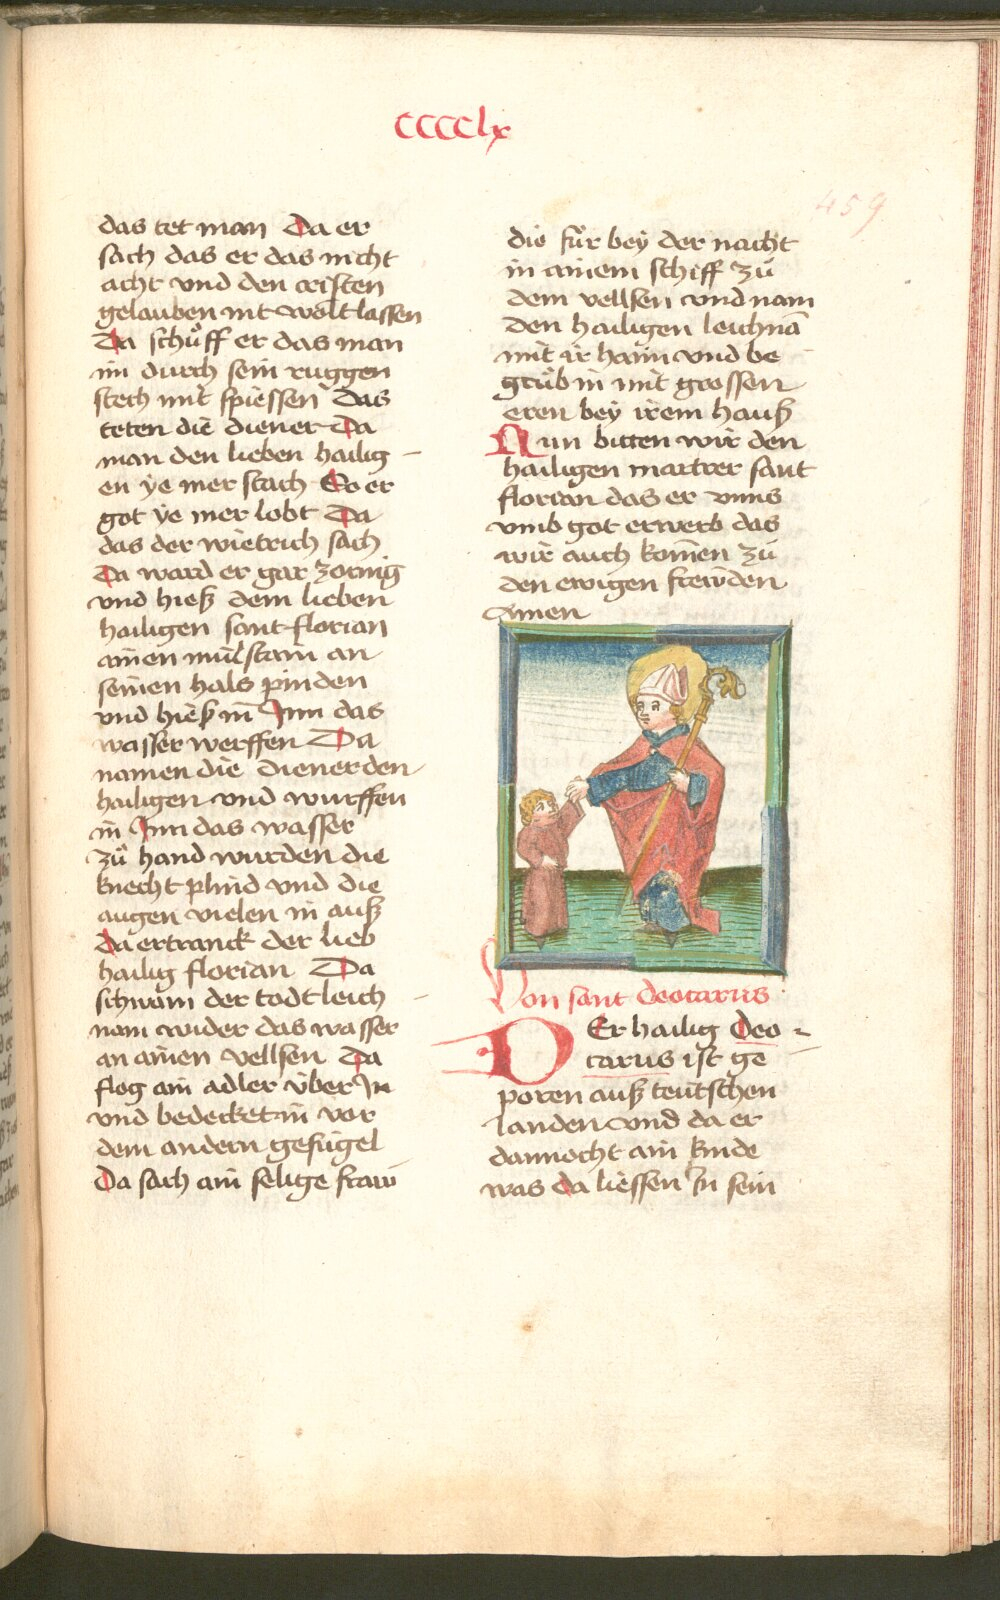 CCCClx
459
das tet man Da er
sach das er das nicht
acht vnd den cristen
gelauben nit wolt lassen
Da schůff er das man
im durch sein ruggen
stech mit spiessen Das
teten die diener Da
man den lieben heilig
en ye mer stach So er
got ye mer lobt Da
das der wietrich sach
Da ward er gar zornig
vnd hieß dem lieben
hailigen sant florian
ainen mülstain an
seinen hals pinden
vnd hieß in Inn das
wasser werffen Da
namen die diener den
hailigen vnd wurffen
in Inn das wasser
Zů hand wurden die
knecht plind vnd die
augen vielen in auß
da ertranck der lieb
hailig florian Da
schwam der todt leich
nam wider das wasser
an ainen vellsen Da
flog ain adler über In
vnd bedecket in vor
dem andern gefügel
Da sach ain selige fraw
die für bey der nacht
in ainem schiff zů
dem vellsen vnd nam
den hailigen leichnā
mit ir haim vnd be
grůb in mit grossen
eren bey irem hauß
Nun bitten wir den
hailigen martrer sant
florian das er vnns
vmb got erwerb das
wir auch komen zů
den ewigen frewden
Amen
Von sant deocarus
DEr hailig deo
carus ist ge
poren auß teutschen
landen vnd da er
dannocht ain kinde
was da liessen In sein